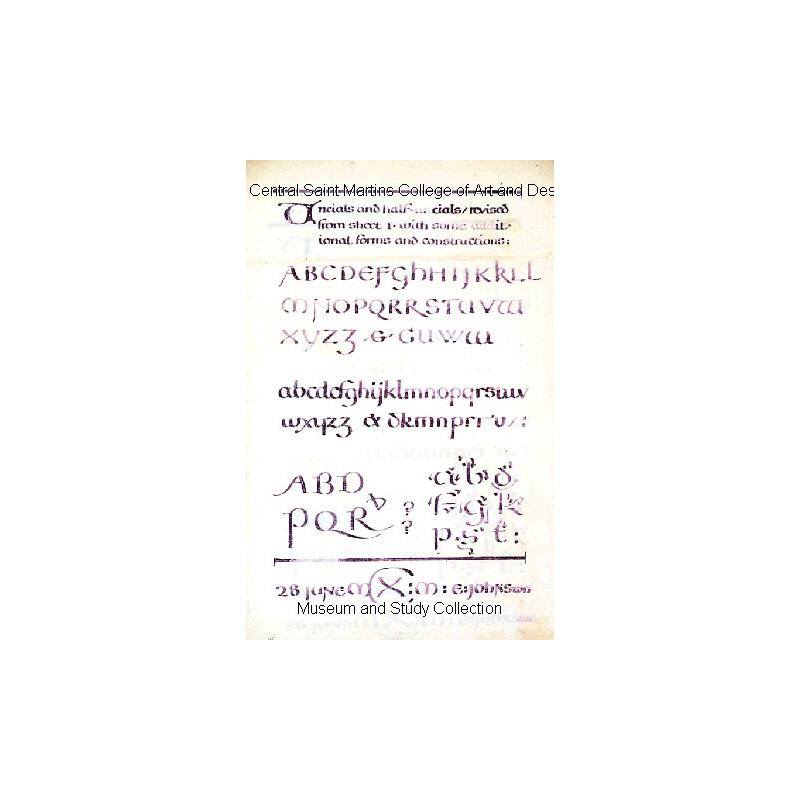 Central Saint Martins College of Art and Des
Uncials and half-uncials/revised
from sheet 1. with some addit-
ional forms and constructions:
ABCDEFGHHIJKKLL
MNOPQRRSTUVW
XYZZ & GUWW
abcdefghijklmnopqrstuv
wxyzz & dkmnprr
ABD
PQR b ? ?
a b g
f g k
p s t :
28 JUNE MCM : E: JOHNSTON
Museum and Study Collection